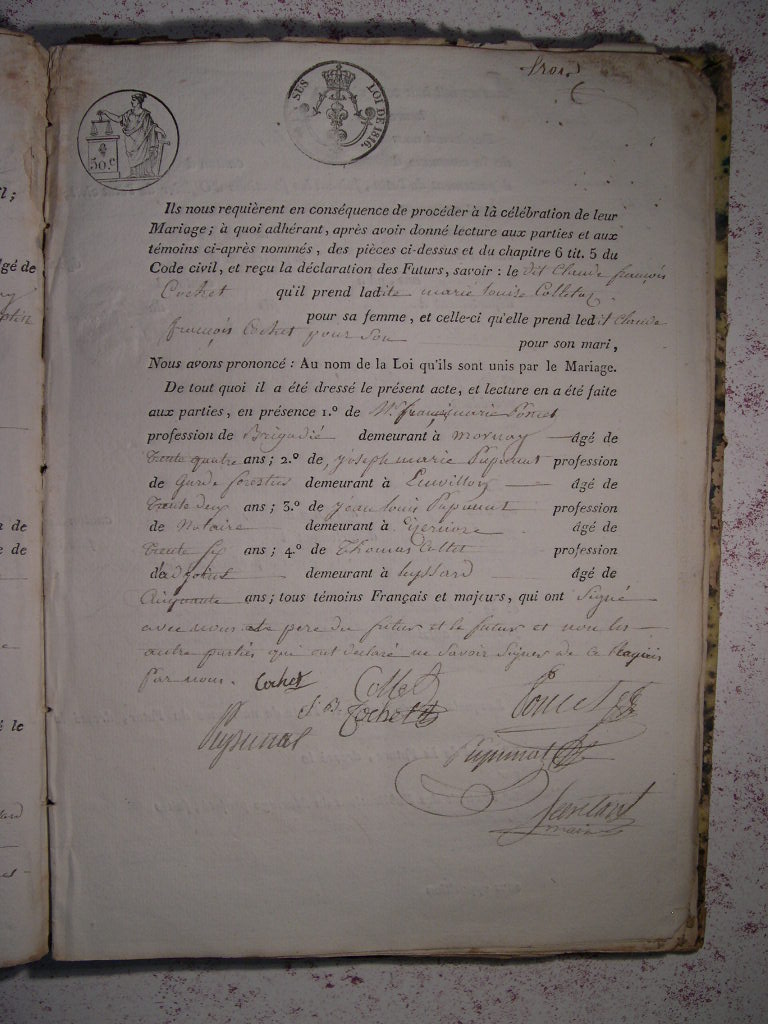 trois
SES LOI DE 1816.
50.c
Ils nous requièrent en conséquence de procéder à là célébration de leur
Mariage; à quoi adhérant, après avoir donné lecture aux parties et aux
témoins ci-après nommés, des pièces ci-dessus et du chapitre 6 tit. 5 du
Code civil, et reçu la déclaration des Futurs, savoir : le dit Claude françois
Cochet qu'il prend ladite marie Louise Colletaz
pour sa femme, et celle-ci qu'elle prend ledit Claude
françois Cochet pour son pour son mari,
Nous avons prononcé : Au nom de la Loi qu'ils sont unis par le Mariage.
De tout quoi il a été dressé le présent acte, et lecture en a été faite
aux parties, en présence 1.º de françois marie Poncet
profession de Brigadié demeurant à mornay âgé de
trente quatre ans; 2.º de joseph marie Pupunat profession
de Garde forestier demeurant à âgé de
trente deux ans; 3.º de jean Louis Pupunat profession
de Notaire demeurant à âgé de
trente six ans; 4.º de Thomas Collet profession
d'adjoint demeurant à heyssard âgé de
Cinquante ans; tous témoins Français et majeurs, qui ont Signé
avec nous le pere du futur et le futur et non les
autre parties qui ont déclaré ne Savoir Signer de ce Requis
Par nous. Cochet Collet
J. B. Cochet Poncet
Pupunat Pupunat
maire
fl;
âgé de
n de
e de
é le